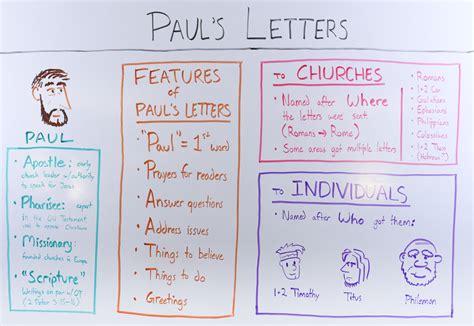 PAUL'S LETTERS
PAUL
• Apostle: early
church leader w/authority
to speak for Jesus
• Pharisee: expert
in the Old Testament
used to oppose Christians
• Missionary:
founded churches in Europe
• "Scripture"
Writings on par w/OT
(2 Peter 3:15-16)
FEATURES of
PAUL'S LETTERS
• "Paul" = 1st
word
• Prayers for readers
• Answer questions
• Address issues
• Things to believe
• Things to do
• Greetings
TO CHURCHES
• Named after Where
the letters were sent
(Romans → Rome)
• Some areas got multiple letters
• Romans
• 1+2 Cor
• Galatians
• Ephesians
• Philippians
• Colossians
• 1+2 Thess
• (Hebrews?)
TO INDIVIDUALS
• Named after Who got them:
1+2 Timothy
Titus
Philemon